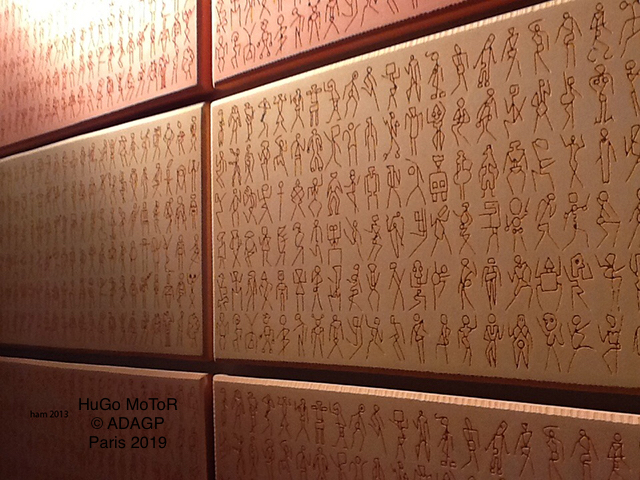 ham 2013
HuGo MoToR
© ADAGP
Paris 2019